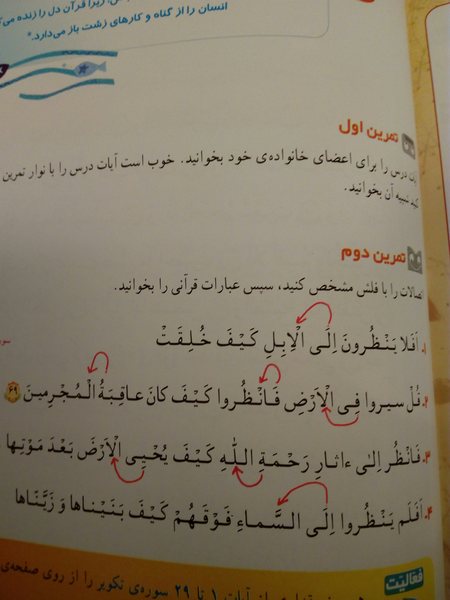 انسان را از گناه و کارهای زشت باز می‌دارد.
تمرین اول
درس را برای اعضای خانواده‌ی خود بخوانید. خوب است آیات درس را با نوار تمرین
کنید شبیه آن بخوانید.
تمرین دوم
اتصالات را با فلش مشخص کنید، سپس عبارات قرآنی را بخوانید.
۱. اَفَلا یَنْظُرونَ اِلَی الْاِبِلِ کَیْفَ خُلِقَتْ
۲. قُلْ سیروا فِی الْاَرْضِ فَانْظُروا کَیْفَ کانَ عاقِبَةُ الْمُجْرِمینَ ۶۹
۳. فَانْظُر اِلیٰ ءاثارِ رَحْمَةِ اللّٰهِ کَیْفَ یُحْیِی الْاَرْضَ بَعْدَ مَوْتِها
۴. اَفَلَم یَنْظُروا اِلَی السَّماءِ فَوْقَهُمْ کَیْفَ بَنَیْناها وَ زَیَّنّاها
فعالیّت
آیات ۱ تا ۲۹ سوره‌ی تکویر را از روی صفحه‌ی